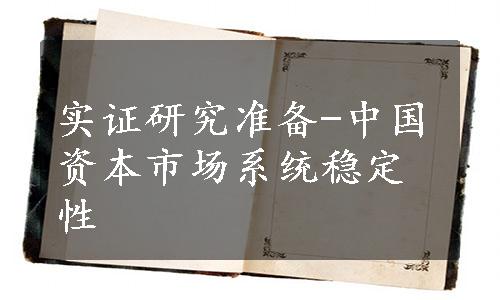 实证研究准备-中国
资本市场系统稳定
性